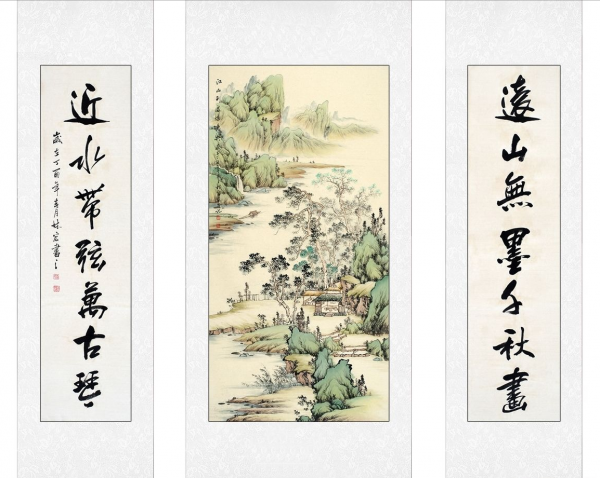 遠山無墨千秋畫
江山
近水帶弦萬古琴
歲在丁酉年春月林宏書之